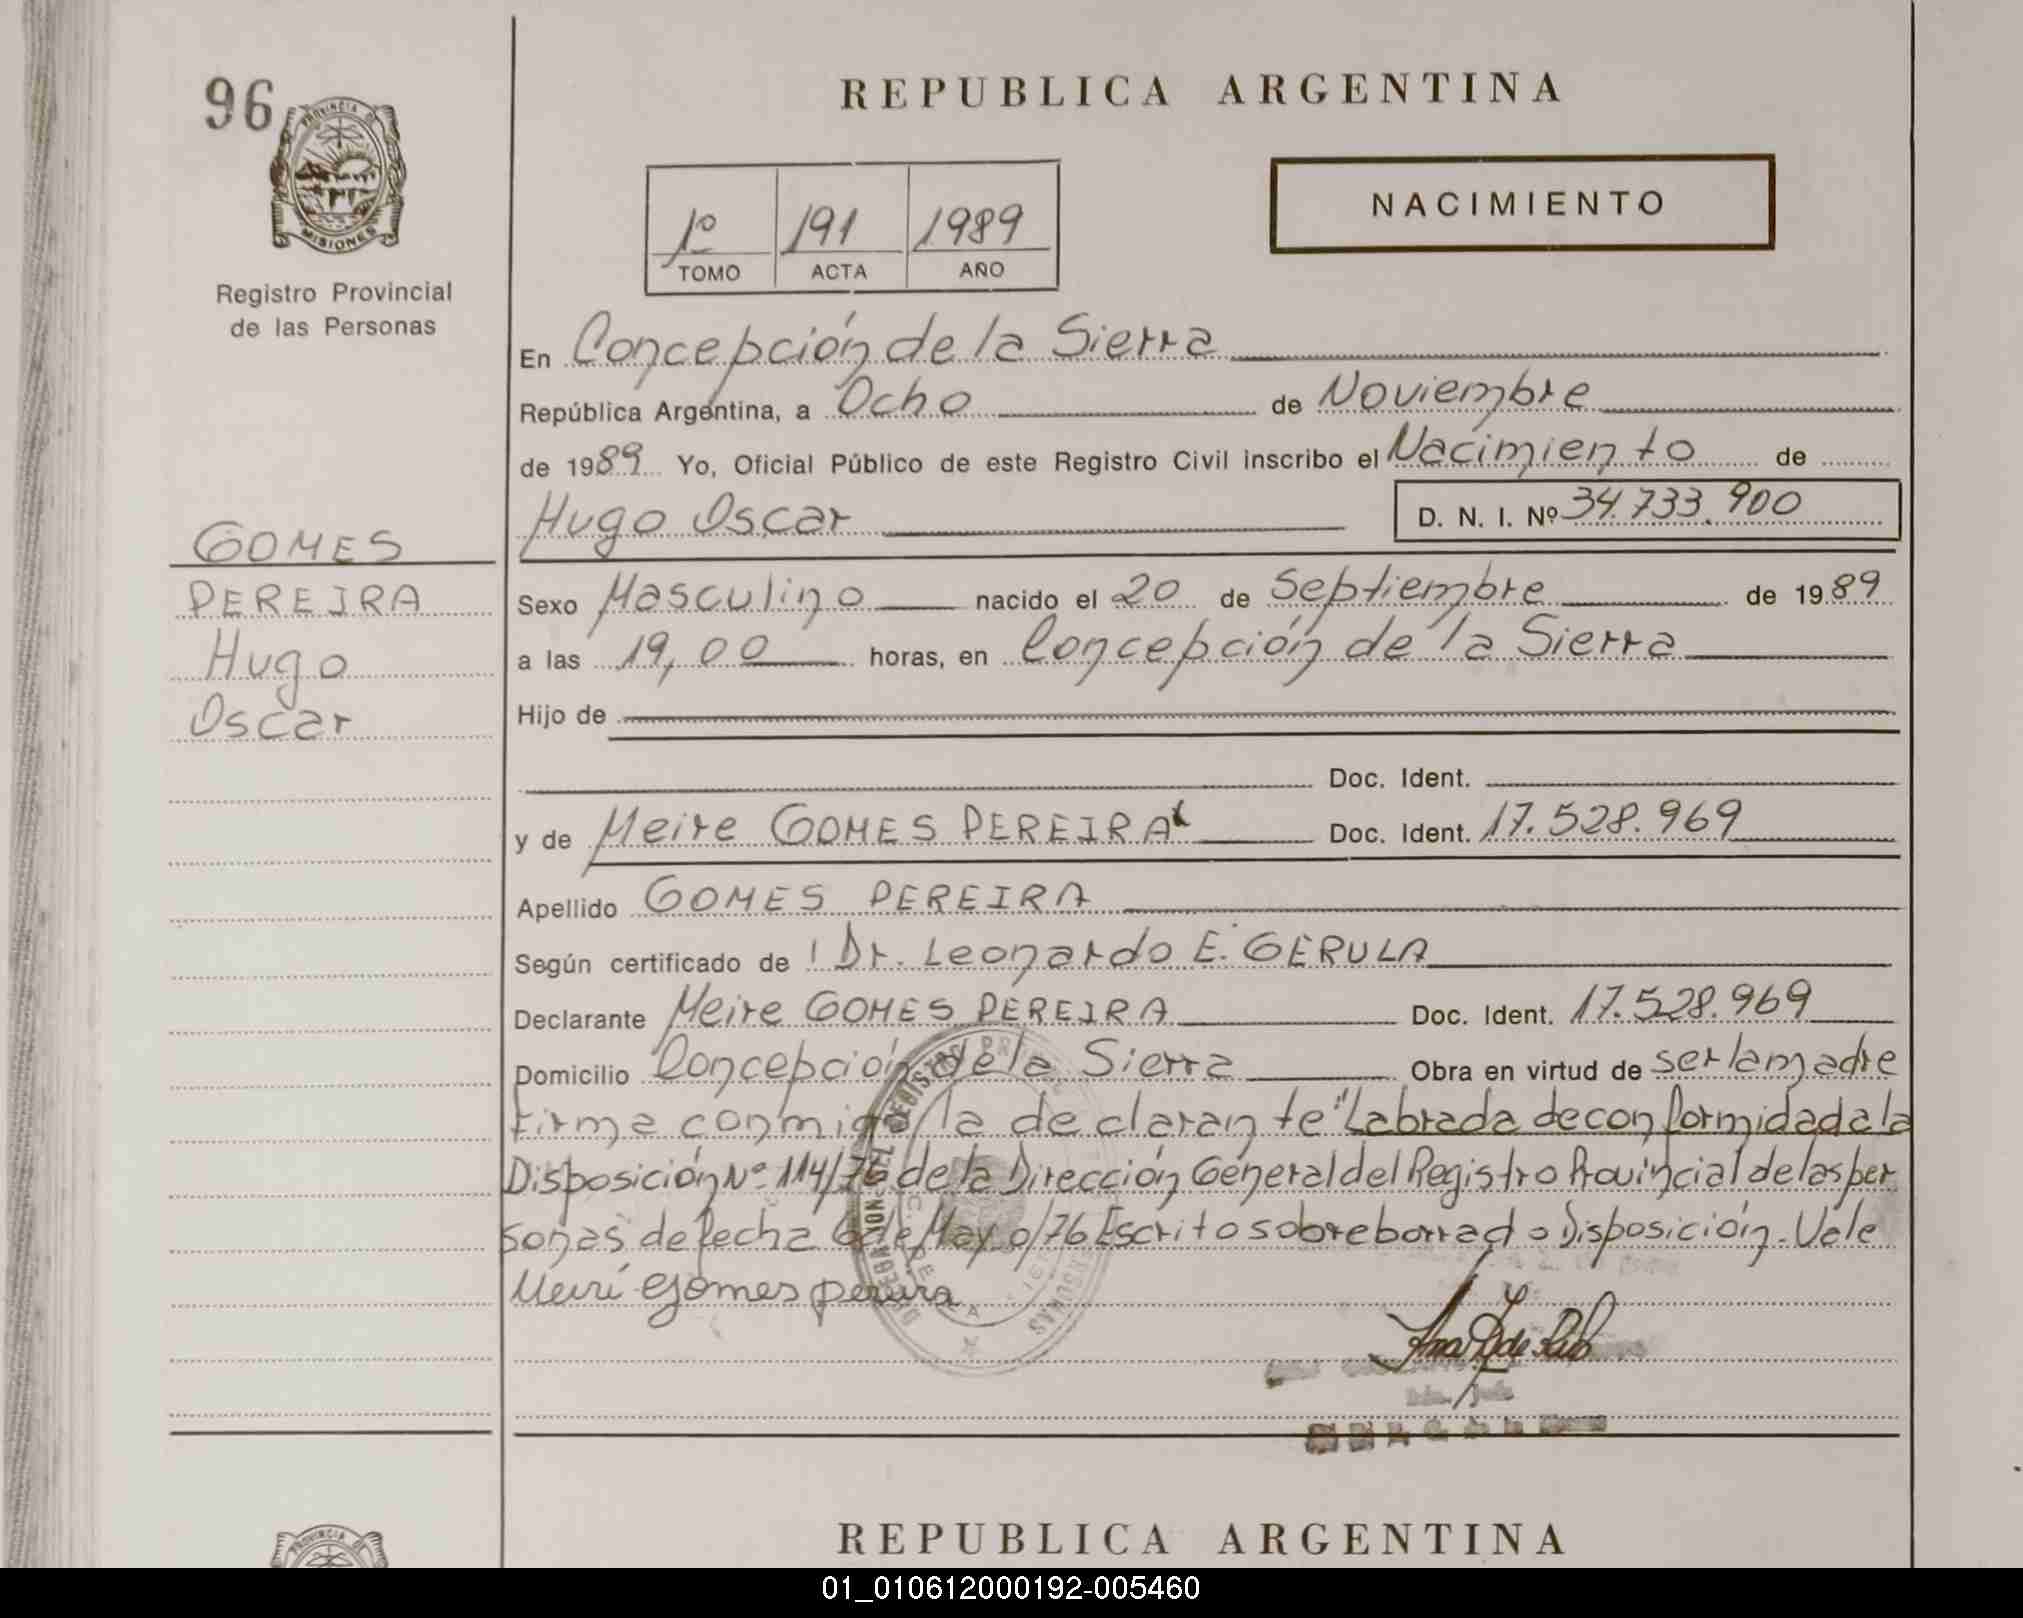 96
PROVINCIA DE
MISIONES
Registro Provincial
de las Personas
REPUBLICA ARGENTINA
1º 191 1989
TOMO ACTA AÑO
NACIMIENTO
En Concepción de la Sierra
República Argentina, a Ocho de Noviembre
de 1989 Yo, Oficial Público de este Registro Civil inscribo el Nacimiento de
Hugo Oscar D. N. I. Nº 34.733.900
GOMES
PEREIRA
Hugo
Oscar
Sexo Masculino nacido el 20 de Septiembre de 1989
a las 19,00 horas, en Concepción de la Sierra
Hijo de
Doc. Ident.
y de Meire GOMES PEREIRA Doc. Ident. 17.528.969
Apellido GOMES PEREIRA
Según certificado de Dr. Leonardo E. GERULA
Declarante Meire GOMES PEREIRA Doc. Ident. 17.528.969
Domicilio Concepción de la Sierra Obra en virtud de ser la madre
firma conmigo la declarante "Labrada de conformidad a la
Disposición Nº 114/76 de la Dirección General del Registro Provincial de las per
sonas de fecha 6 de Mayo/76 Escrito sobre borrado Disposición. Vale
Meiri gomes pereira
REPUBLICA ARGENTINA
PROVINCIA DE
01_010612000192-005460